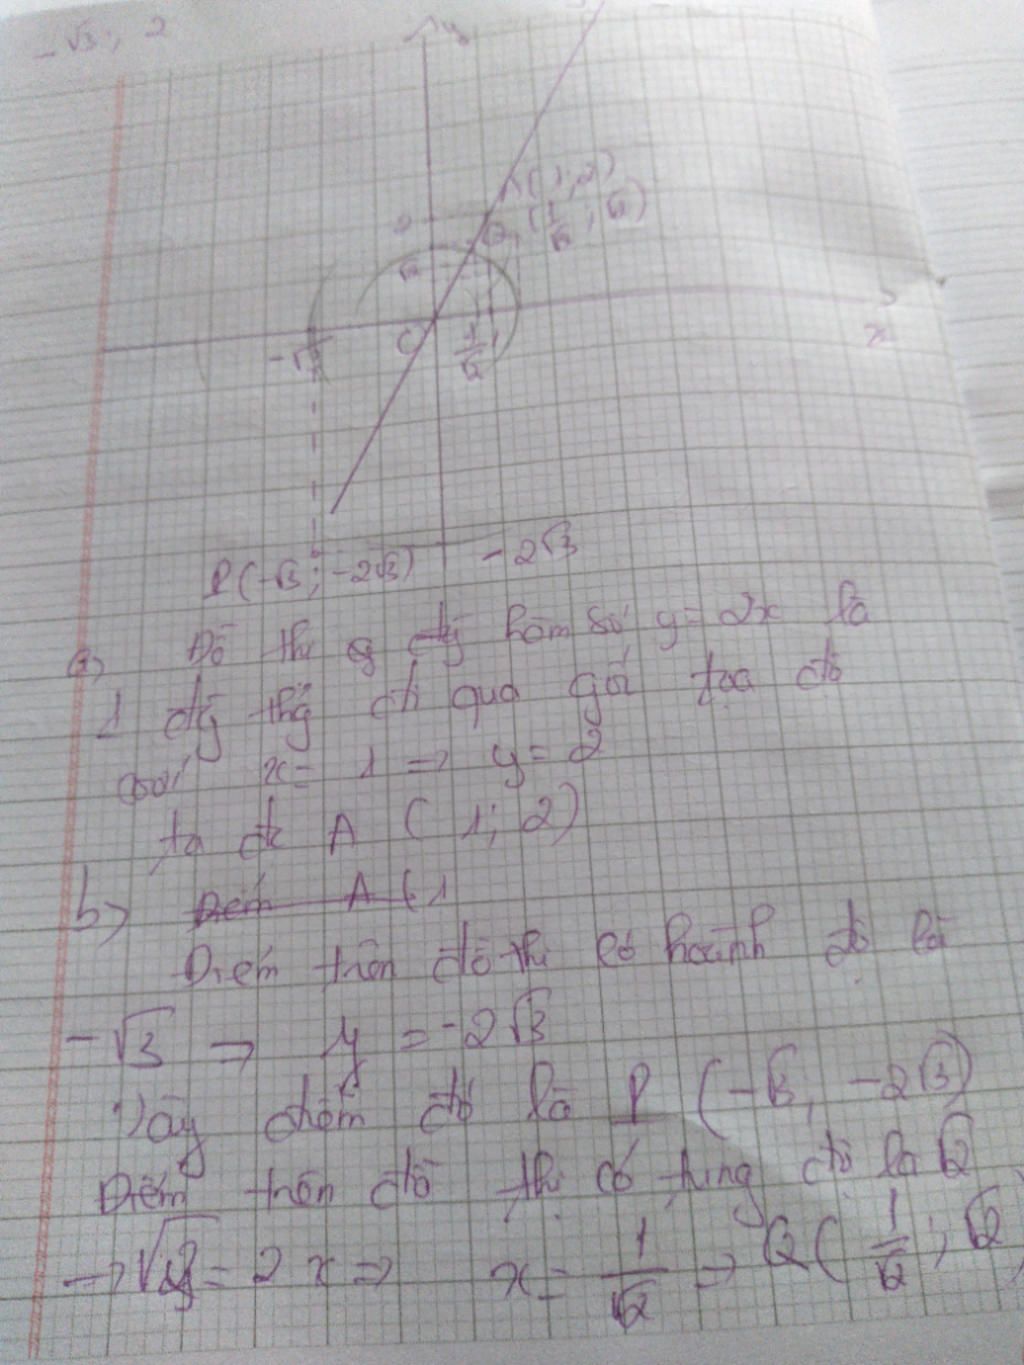 -√3; 2
y
A(1; 2)
2
Q(1/√2; √2)
√2
x
O
1/√2
1
P(-√3; -2√3) -2√3
a) Đồ thị hàm số y = 2x là
1 đg thg đi qua gốc tọa độ
với x = 1 => y = 2
ta đc A (1; 2)
b) Điểm A (1
Điểm trên đồ thị có hoành độ là
-√3 => y = -2√3
Vậy điểm đó là P (-√3, -2√3)
Điểm trên đồ thị có tung độ là √2
→ √2 = 2x => x = 1/√2 => Q(1/√2; √2)